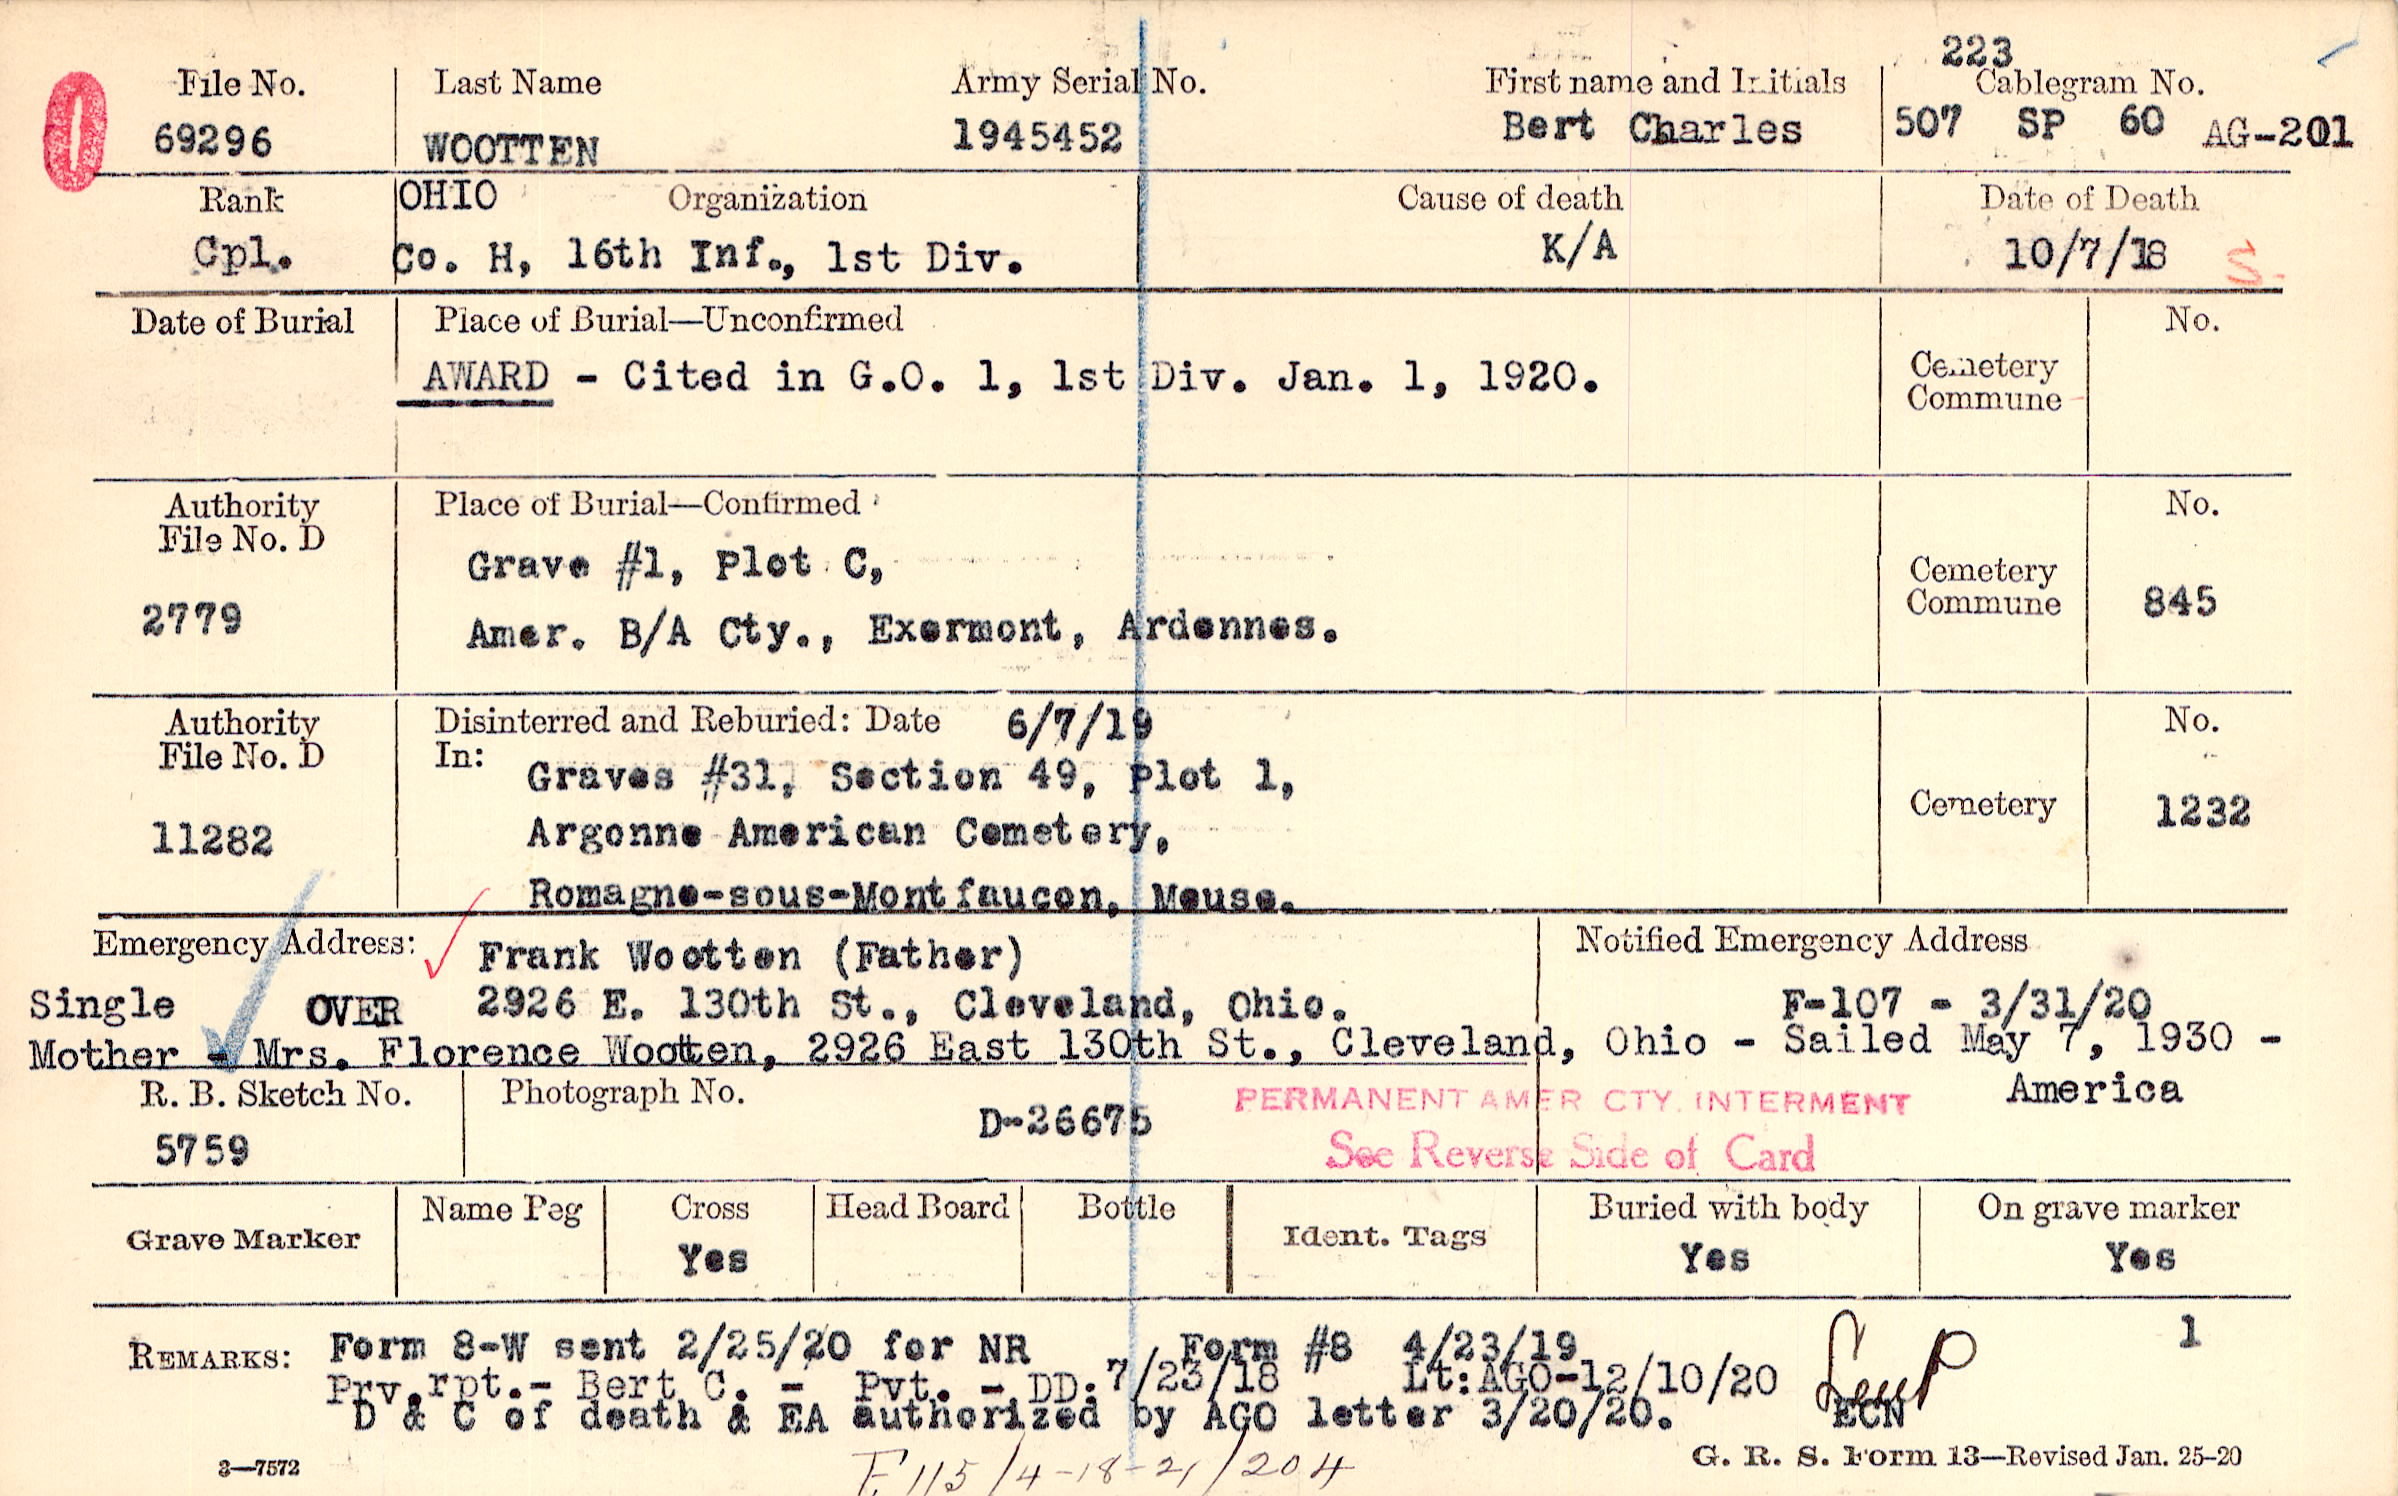 223
File No. Last Name Army Serial No. First name and Initials Cablegram No.
69296 WOOTTEN 1945452 Bert Charles 507 SP 60 AG-201
Rank OHIO Organization Cause of death Date of Death
Cpl. Co. H, 16th Inf., 1st Div. K/A 10/7/18 S.
Date of Burial Place of Burial—Unconfirmed No.
AWARD - Cited in G.O. 1, 1st Div. Jan. 1, 1920.
Cemetery
Commune
Authority Place of Burial—Confirmed No.
File No. D
Grave #1, Plot C,
Cemetery
2779 Amer. B/A Cty., Exermont, Ardennes. Commune 845
Authority Disinterred and Reburied: Date 6/7/19 No.
File No. D In:
Graves #31, Section 49, Plot 1,
11282 Argonne American Cemetery, Cemetery 1232
Romagne-sous-Montfaucon, Meuse.
Emergency Address: Frank Wootten (Father) Notified Emergency Address
Single OVER 2926 E. 130th St., Cleveland, Ohio. F-107 - 3/31/20
Mother - Mrs. Florence Wootten, 2926 East 130th St., Cleveland, Ohio - Sailed May 7, 1930 -
America
R. B. Sketch No. Photograph No. PERMANENT AMER CTY. INTERMENT
5759 D-26675 See Reverse Side of Card
Grave Marker Name Peg Cross Head Board Bottle Ident. Tags Buried with body On grave marker
Yes Yes Yes
1
REMARKS: Form 8-W sent 2/25/20 for NR Form #8 4/23/19
Prv.rpt.- Bert C. - Pvt. - DD:7/23/18 Lt:AGO-12/10/20
D & C of death & EA authorized by AGO letter 3/20/20. ECN
3—7572 G. R. S. Form 13—Revised Jan. 25-20
E 115/4-18-21/204